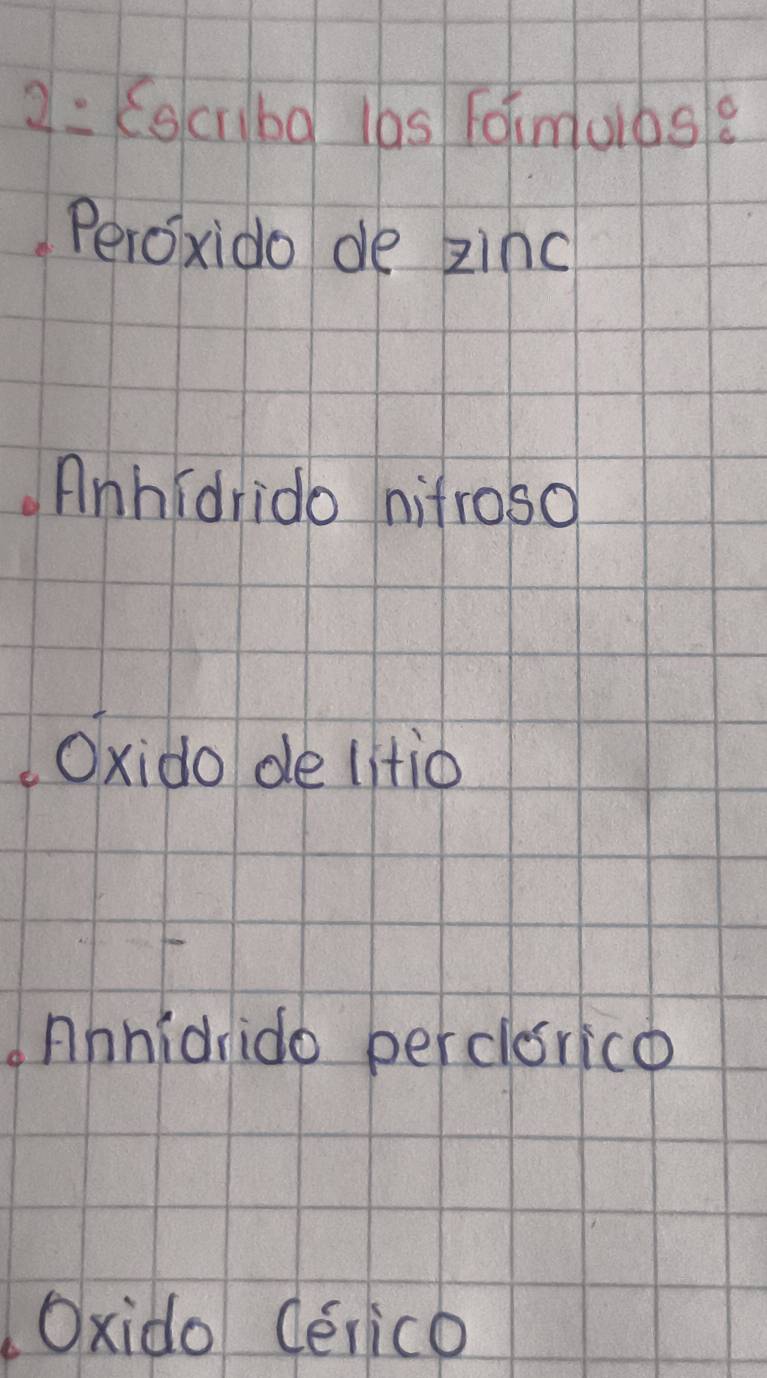 2= Escriba las Fórmulas:
. Peróxido de zinc
. Anhídrido nitroso
. Óxido de litio
. Anhídrido perclórico
. Oxido Cérico